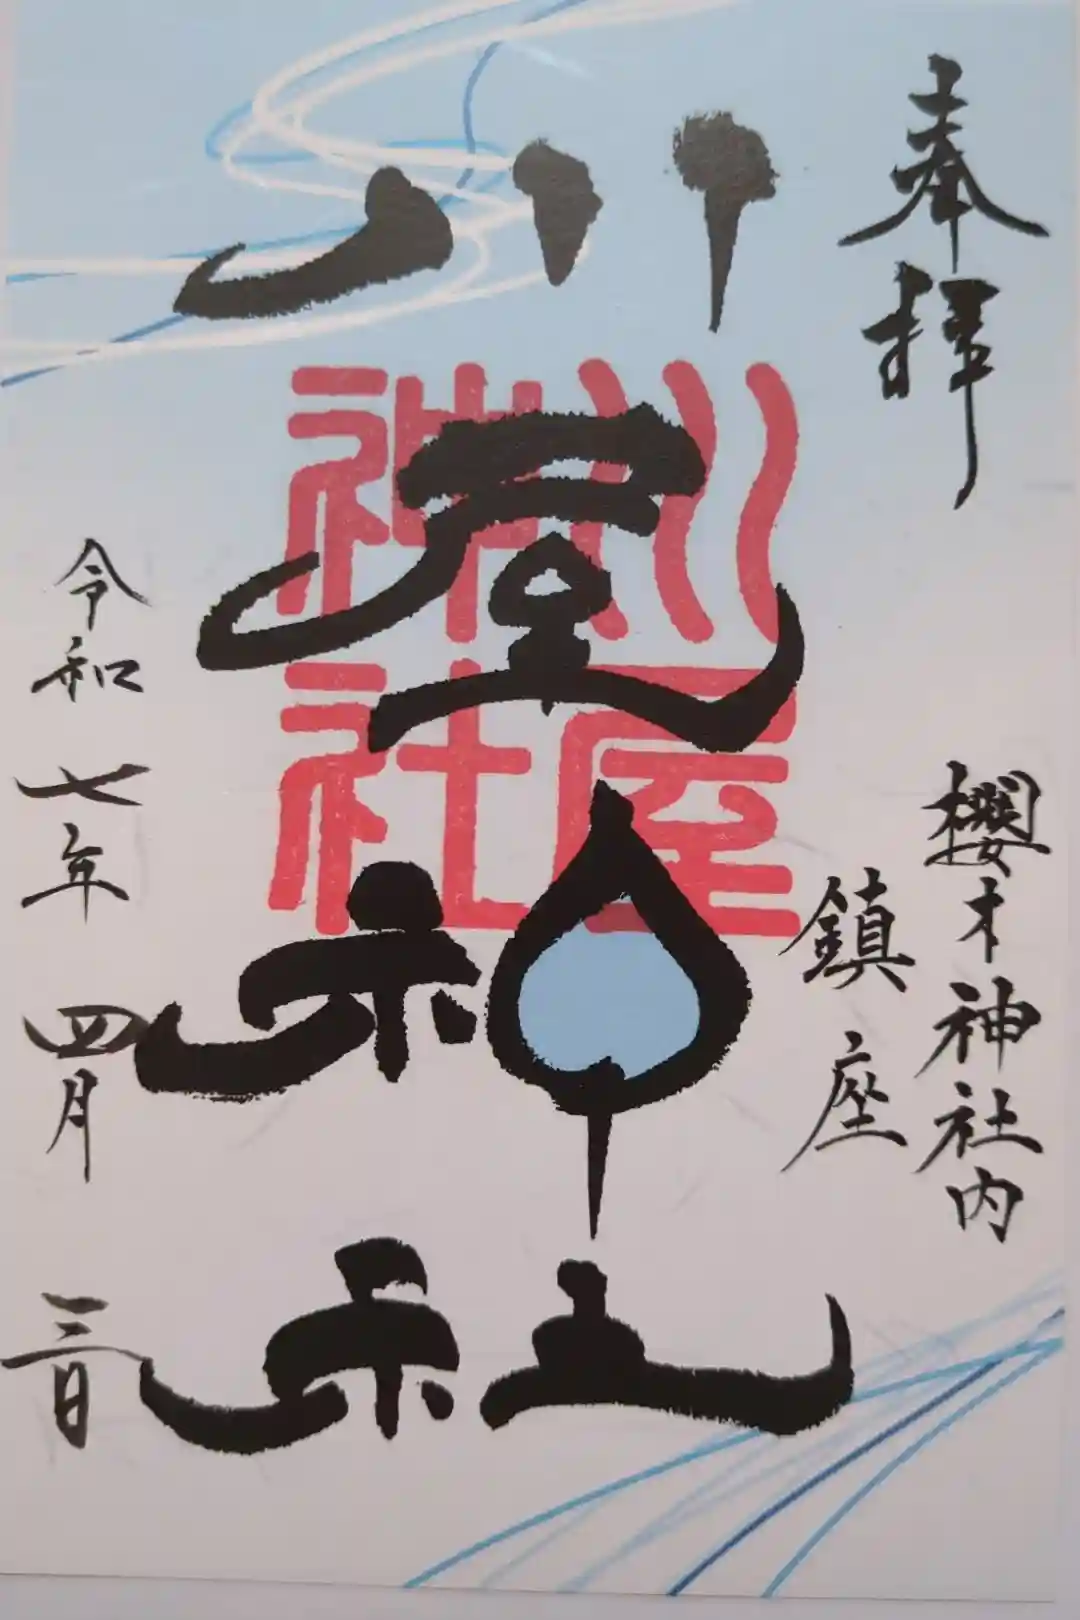 奉拝
櫻木神社内
鎮座
川屋神社
川屋神社
令和七年四月三日